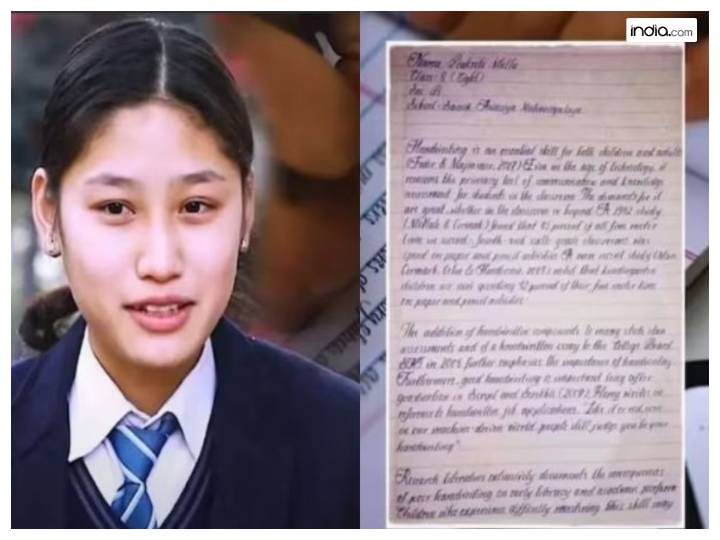 india.com
Name: Prakriti Malla
Class: 8 (Eight)
Sec: B
School: Sainik Mahavidyalaya
Handwriting is an essential skill for both children and adults
(Feder & Majnemer, 2007). Even in the age of technology, it
remains the primary tool of communication and knowledge
assessment for students in the classroom. The demands for it
are great, whether in the classroom or beyond. A 1992 study
(McHale & Cermak) found that 85 percent of all fine motor
time in second- fourth- and sixth- grade classrooms was
spent on paper and pencil activities. A more recent study
Cermak, 2003) noted that kindergarten
children are now spending 42 percent of their fine motor time
on paper and pencil activities.
The addition of handwritten components to many state
assessments and of a handwritten essay to the College Board
in 2005 further emphasize the importance of handwriting.
Furthermore, good handwriting is important long after
graduation
reference to handwritten job applications: "Like it or not, even
in our machine-driven world, people still judge you by your
handwriting".
Research literature extensively documents the consequences
of poor handwriting on early literacy and academic
Children who experience difficulty mastering this skill may